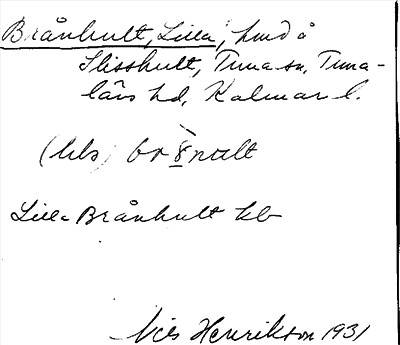 Brånhult, Lilla, hmd å
Slisshult, Tuna sn, Tuna-
läns hd, Kalmar l.
(hls)
Lilla Brånhult hb
Nils Henrikson 1931